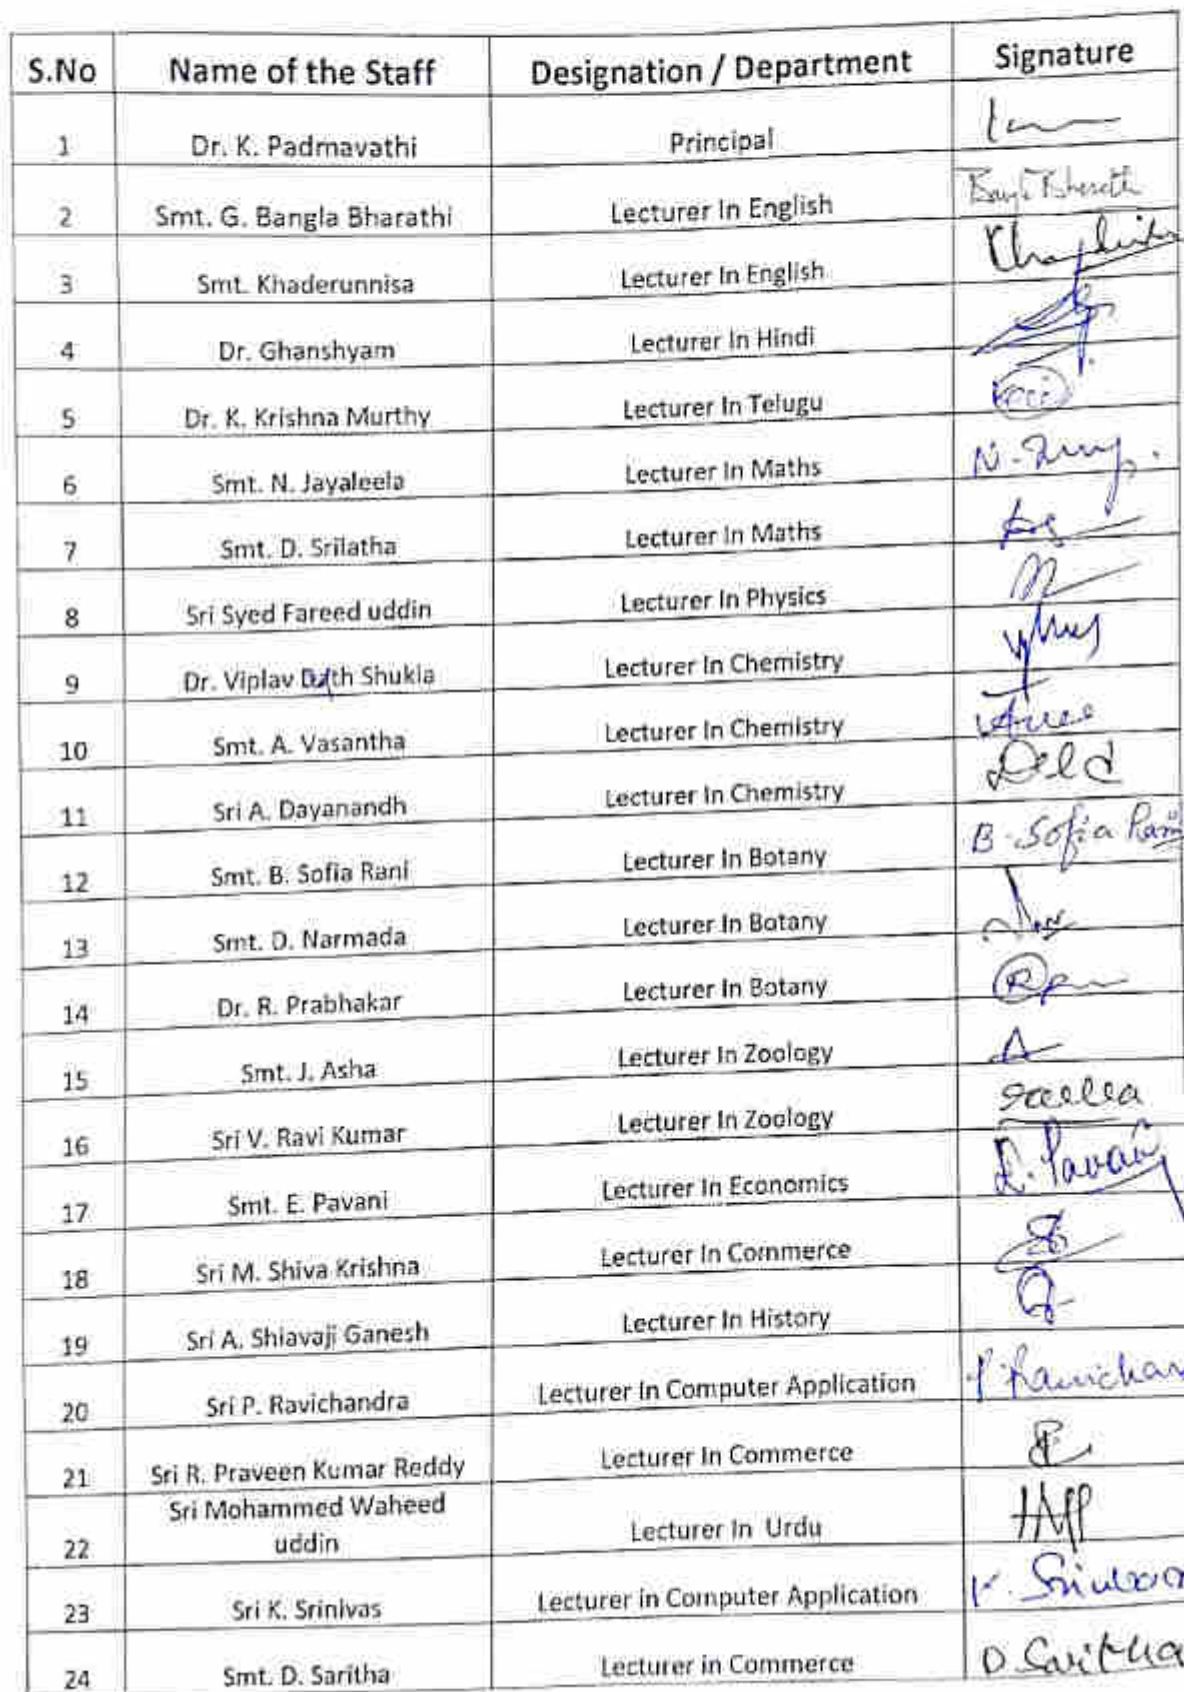 S.No Name of the Staff Designation / Department Signature
1 Dr. K. Padmavathi Principal
2 Smt. G. Bangla Bharathi Lecturer In English Bangla Bharathi
3 Smt. Khaderunnisa Lecturer In English
4 Dr. Ghanshyam Lecturer In Hindi
5 Dr. K. Krishna Murthy Lecturer In Telugu
6 Smt. N. Jayaleela Lecturer In Maths
7 Smt. D. Srilatha Lecturer In Maths
8 Sri Syed Fareed uddin Lecturer In Physics
9 Dr. Viplav Shukla Lecturer In Chemistry
10 Smt. A. Vasantha Lecturer In Chemistry
11 Sri A. Dayanandh Lecturer In Chemistry
12 Smt. B. Sofia Rani Lecturer In Botany B. Sofia Rani
13 Smt. D. Narmada Lecturer In Botany
14 Dr. R. Prabhakar Lecturer In Botany
15 Smt. J. Asha Lecturer In Zoology
16 Sri V. Ravi Kumar Lecturer In Zoology
17 Smt. E. Pavani Lecturer In Economics E. Pavani
18 Sri M. Shiva Krishna Lecturer In Commerce
19 Sri A. Shiavaji Ganesh Lecturer In History
20 Sri P. Ravichandra Lecturer In Computer Application P. Ravichan
21 Sri R. Praveen Kumar Reddy Lecturer In Commerce
Sri Mohammed Waheed
22 uddin Lecturer In Urdu
23 Sri K. Srinivas Lecturer in Computer Application K. Srinivas
24 Smt. D. Saritha Lecturer in Commerce D. Saritha